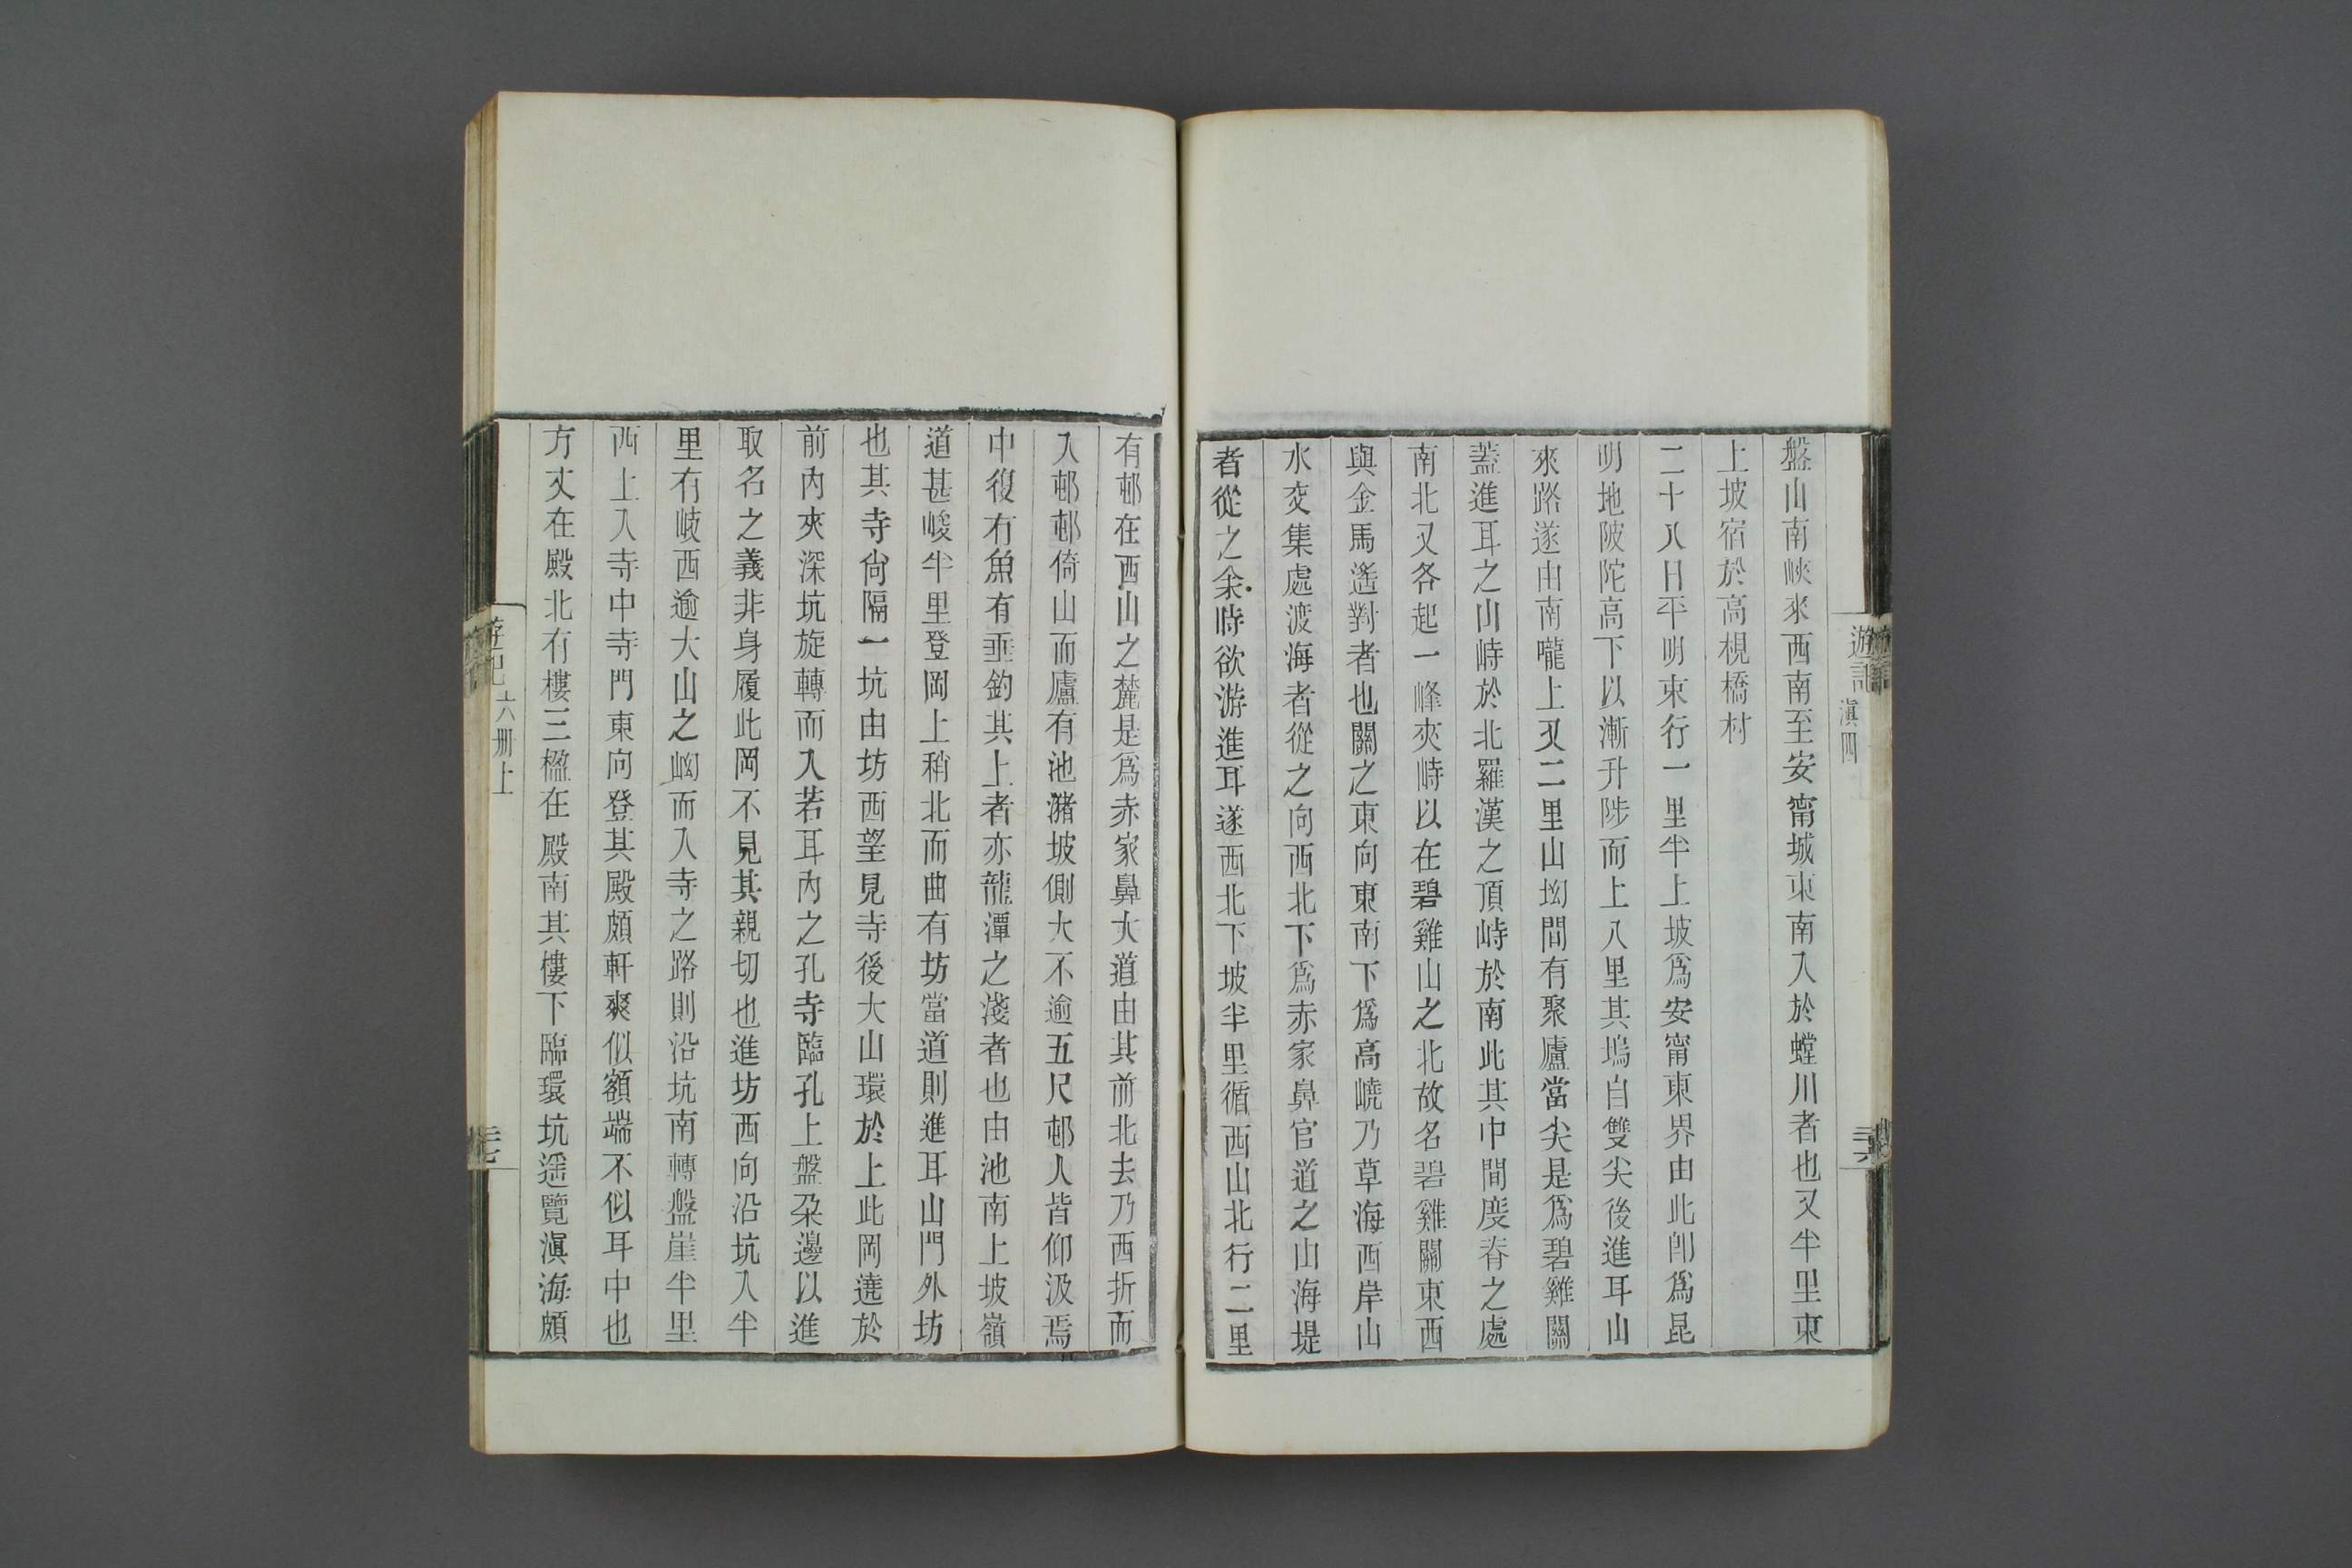 遊記
滇四
三六
盤山南峽來西南至安甯城東南入於螳川者也又半里東
上坡宿於高梘橋村
二十八日平明東行一里半上坡爲安甯東界由此卽爲昆
明地陂陀高下以漸升陟而上八里其塢自雙尖後進耳山
來路遂由南嚨上又二里山坳間有聚廬當尖是爲碧雞關
葢進耳之山峙於北羅漢之頂峙於南此其中間度脊之處
南北又各起一峰夾峙以在碧雞山之北故名碧雞關東西
與金馬遙對者也關之東向東南下爲高嶢乃草海西岸山
水交集處渡海者從之向西北下爲赤家鼻官道之由海堤
者從之余時欲游進耳遂西北下坡半里循西山北行二里
有邨在西山之麓是爲赤家鼻大道由其前北去乃西折而
入邨邨倚山而廬有池瀦坡側大不逾五尺邨人皆仰汲焉
中復有魚有垂釣其上者亦龍潭之淺者也由池南上坡嶺
道甚峻半里登岡上稍北而曲有坊當道則進耳山門外坊
也其寺尙隔一坑由坊西望見寺後大山環於上此岡遶於
前內夾深坑旋轉而入若耳內之孔寺臨孔上盤朶邊以進
取名之義非身履此岡不見其親切也進坊西向沿坑入半
里有岐西逾大山之坳而入寺之路則沿坑南轉盤崖半里
西上入寺中寺門東向登其殿頗軒爽似額端不似耳中也
方丈在殿北有樓三楹在殿南其樓下臨環坑遥覽滇海頗
遊記
六册上